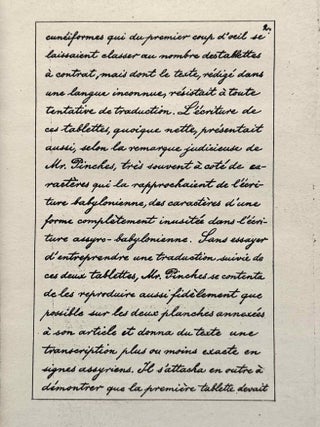 2.
cunéiformes qui du premier coup d'oeil se
laissaient classer au nombre des tablettes
à contrat, mais dont le texte, rédigé dans
une langue inconnue, résistait à toute
tentative de traduction. L'écriture de
ces tablettes, quoique nette, présentait
aussi, selon la remarque judicieuse de
Mr. Pinches, très souvent à coté de ca-
ractères qui la rapprochaient de l'écri-
ture babylonienne, des caractères d'une
forme complètement inusitée dans l'écri-
ture assyro-babylonienne. Sans essayer
d'entreprendre une traduction suivie de
ces deux tablettes, Mr. Pinches se contenta
de les reproduire aussi fidèlement que
possible sur les deux planches annexées
à son article et donna du texte une
transcription plus ou moins exacte en
signes assyriens. Il s'attacha en outre à
démontrer que la première tablette devait